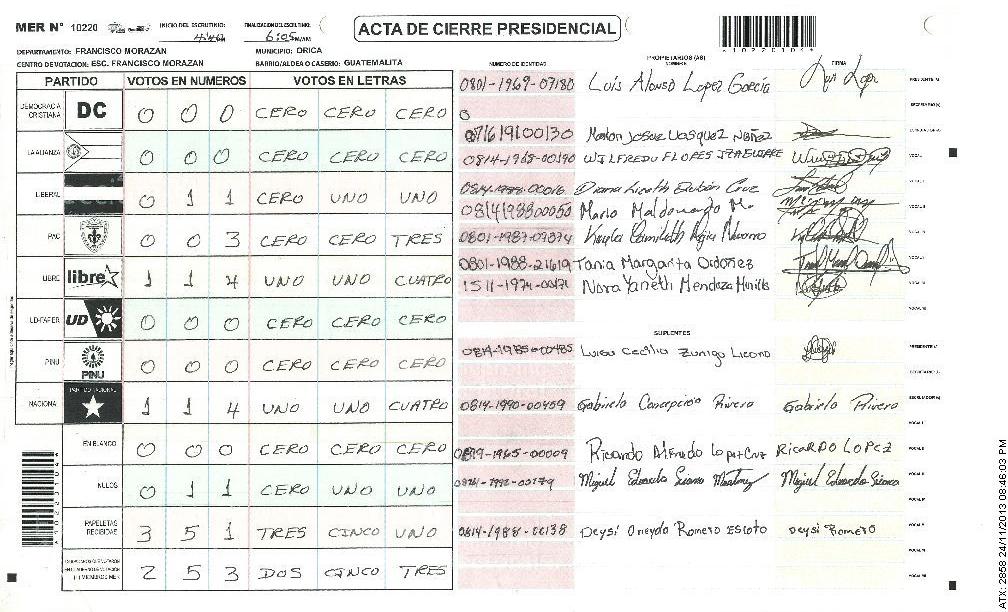 MER N° 10220 INICIO DEL ESCRUTINIO: FINALIZACION DEL ESCRUTINIO: 6:05
ACTA DE CIERRE PRESIDENCIAL
DEPARTAMENTO: FRANCISCO MORAZAN MUNICIPIO: ORICA
CENTRO DE VOTACION: ESC. FRANCISCO MORAZAN BARRIO/ALDEA O CASERIO: GUATEMALITA
PARTIDO VOTOS EN NUMEROS VOTOS EN LETRAS
DEMOCRACIA CRISTIANA DC 0 0 0 CERO CERO CERO
LA ALIANZA 0 0 0 CERO CERO CERO
LIBERAL 0 1 1 CERO UNO UNO
PAC 0 0 3 CERO CERO TRES
LIBRE libre 1 1 4 UNO UNO CUATRO
UD-FAPER UD 0 0 0 CERO CERO CERO
PINU PINU 0 0 0 CERO CERO CERO
NACIONAL PARTIDO NACIONAL 1 1 4 UNO UNO CUATRO
EN BLANCO 0 0 0 CERO CERO CERO
NULOS 0 1 1 CERO UNO UNO
PAPELETAS RECIBIDAS 3 5 1 TRES CINCO UNO
2 5 3 DOS CINCO TRES
NUMERO DE IDENTIDAD PROPIETARIOS (AS) NOMBRE FIRMA
0801-1969-07180 Luis Alonso Lopez Garcia
0
Marlon Josue Vasquez Nuñez
0814-1965-00190 WILFREDO FLORES IZAGUIRRE
0814-1988-00016 Diana Lizeth Cruz
0814198800050 Mario Maldonado M.
0801-1987-07374
0801-1988-21619 Tania Margarita Ordoñez
1511-1974-00171 Nora Yaneth Mendoza Murillo
SUPLENTES
0814-1985-00485 Luisa Cecilia Zuniga Licona
0814-1990-00459 Gabriela Concepcion Rivera Gabriela Rivera
0819-1965-00009 Ricardo Alfredo Lopez Cruz RICARDO LOPEZ
Miguel Eduardo Martinez Miguel Eduardo
0814-1988-00138 Deysi Oneyda Romero Escoto Deysi Romero
ATX: 2858 24/11/2013 08:46:03 PM